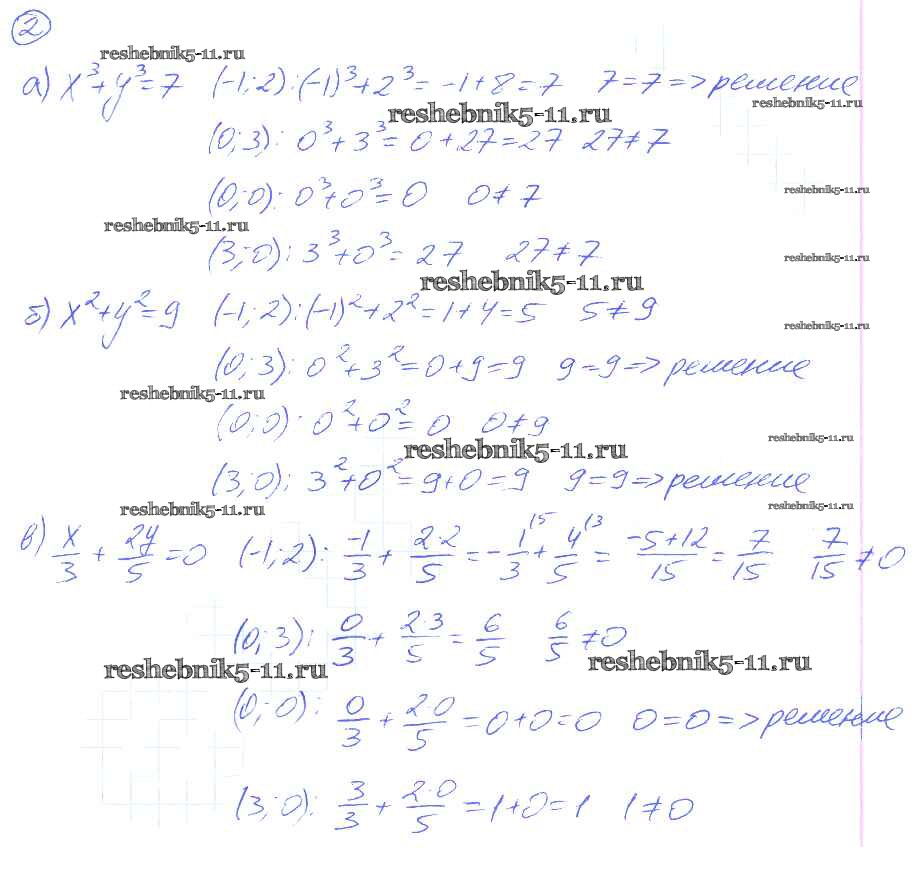 2
reshebnik5-11.ru
а) x³+y³=7 (-1;2):(-1)³+2³=-1+8=7 7=7=>решение
reshebnik5-11.ru
reshebnik5-11.ru
(0;3): 0³+3³=0+27=27 27≠7
(0;0):0³+0³=0 0≠7
reshebnik5-11.ru
reshebnik5-11.ru
(3;0):3³+0³=27 27≠7
reshebnik5-11.ru
reshebnik5-11.ru
б) x²+y²=9 (-1;2):(-1)²+2²=1+4=5 5≠9
reshebnik5-11.ru
(0;3): 0²+3²=0+9=9 9=9=>решение
reshebnik5-11.ru
(0;0): 0²+0²=0 0≠9
reshebnik5-11.ru
reshebnik5-11.ru
(3;0): 3²+0²=9+0=9 9=9=>решение
reshebnik5-11.ru
reshebnik5-11.ru
в) x/3 + 2y/5 =0 (-1;2): -1/3 + 2·2/5 = -1/3\5 + 4/5\3 = -5+12/15 = 7/15 7/15 ≠0
(0;3): 0/3 + 2·3/5 = 6/5 6/5 ≠0
reshebnik5-11.ru
reshebnik5-11.ru
(0;0): 0/3 + 2·0/5 =0+0=0 0=0=>решение
(3;0): 3/3 + 2·0/5 =1+0=1 1≠0